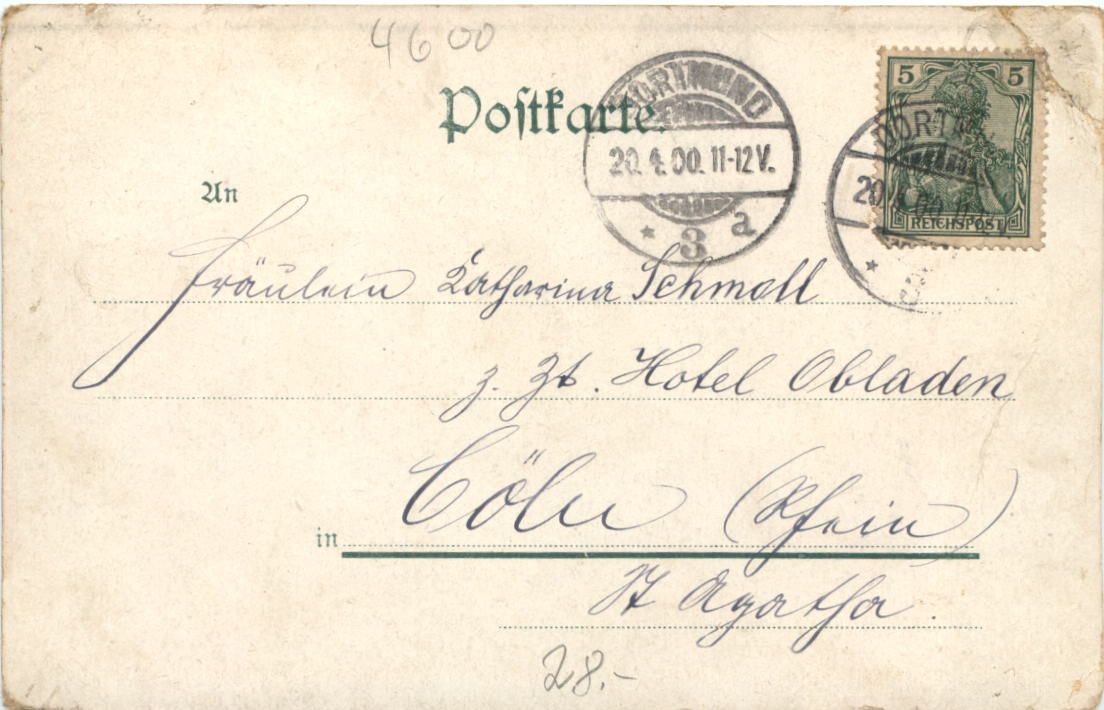 4600
Postkarte.
DORTMUND
20.4.00.11-12V.
* 3 a
5 5
REICHSPOST
DORT
20
*
An
Fräulein Katharina Schmoll
z. Zt. Hotel Obladen
in Cöln (Rhein)
St Agatha.
28.-